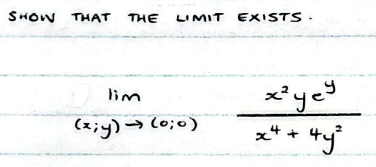 SHOW THAT THE LIMIT EXISTS.
lim (x;y) → (0;0) x² y e^y / x⁴ + 4y²